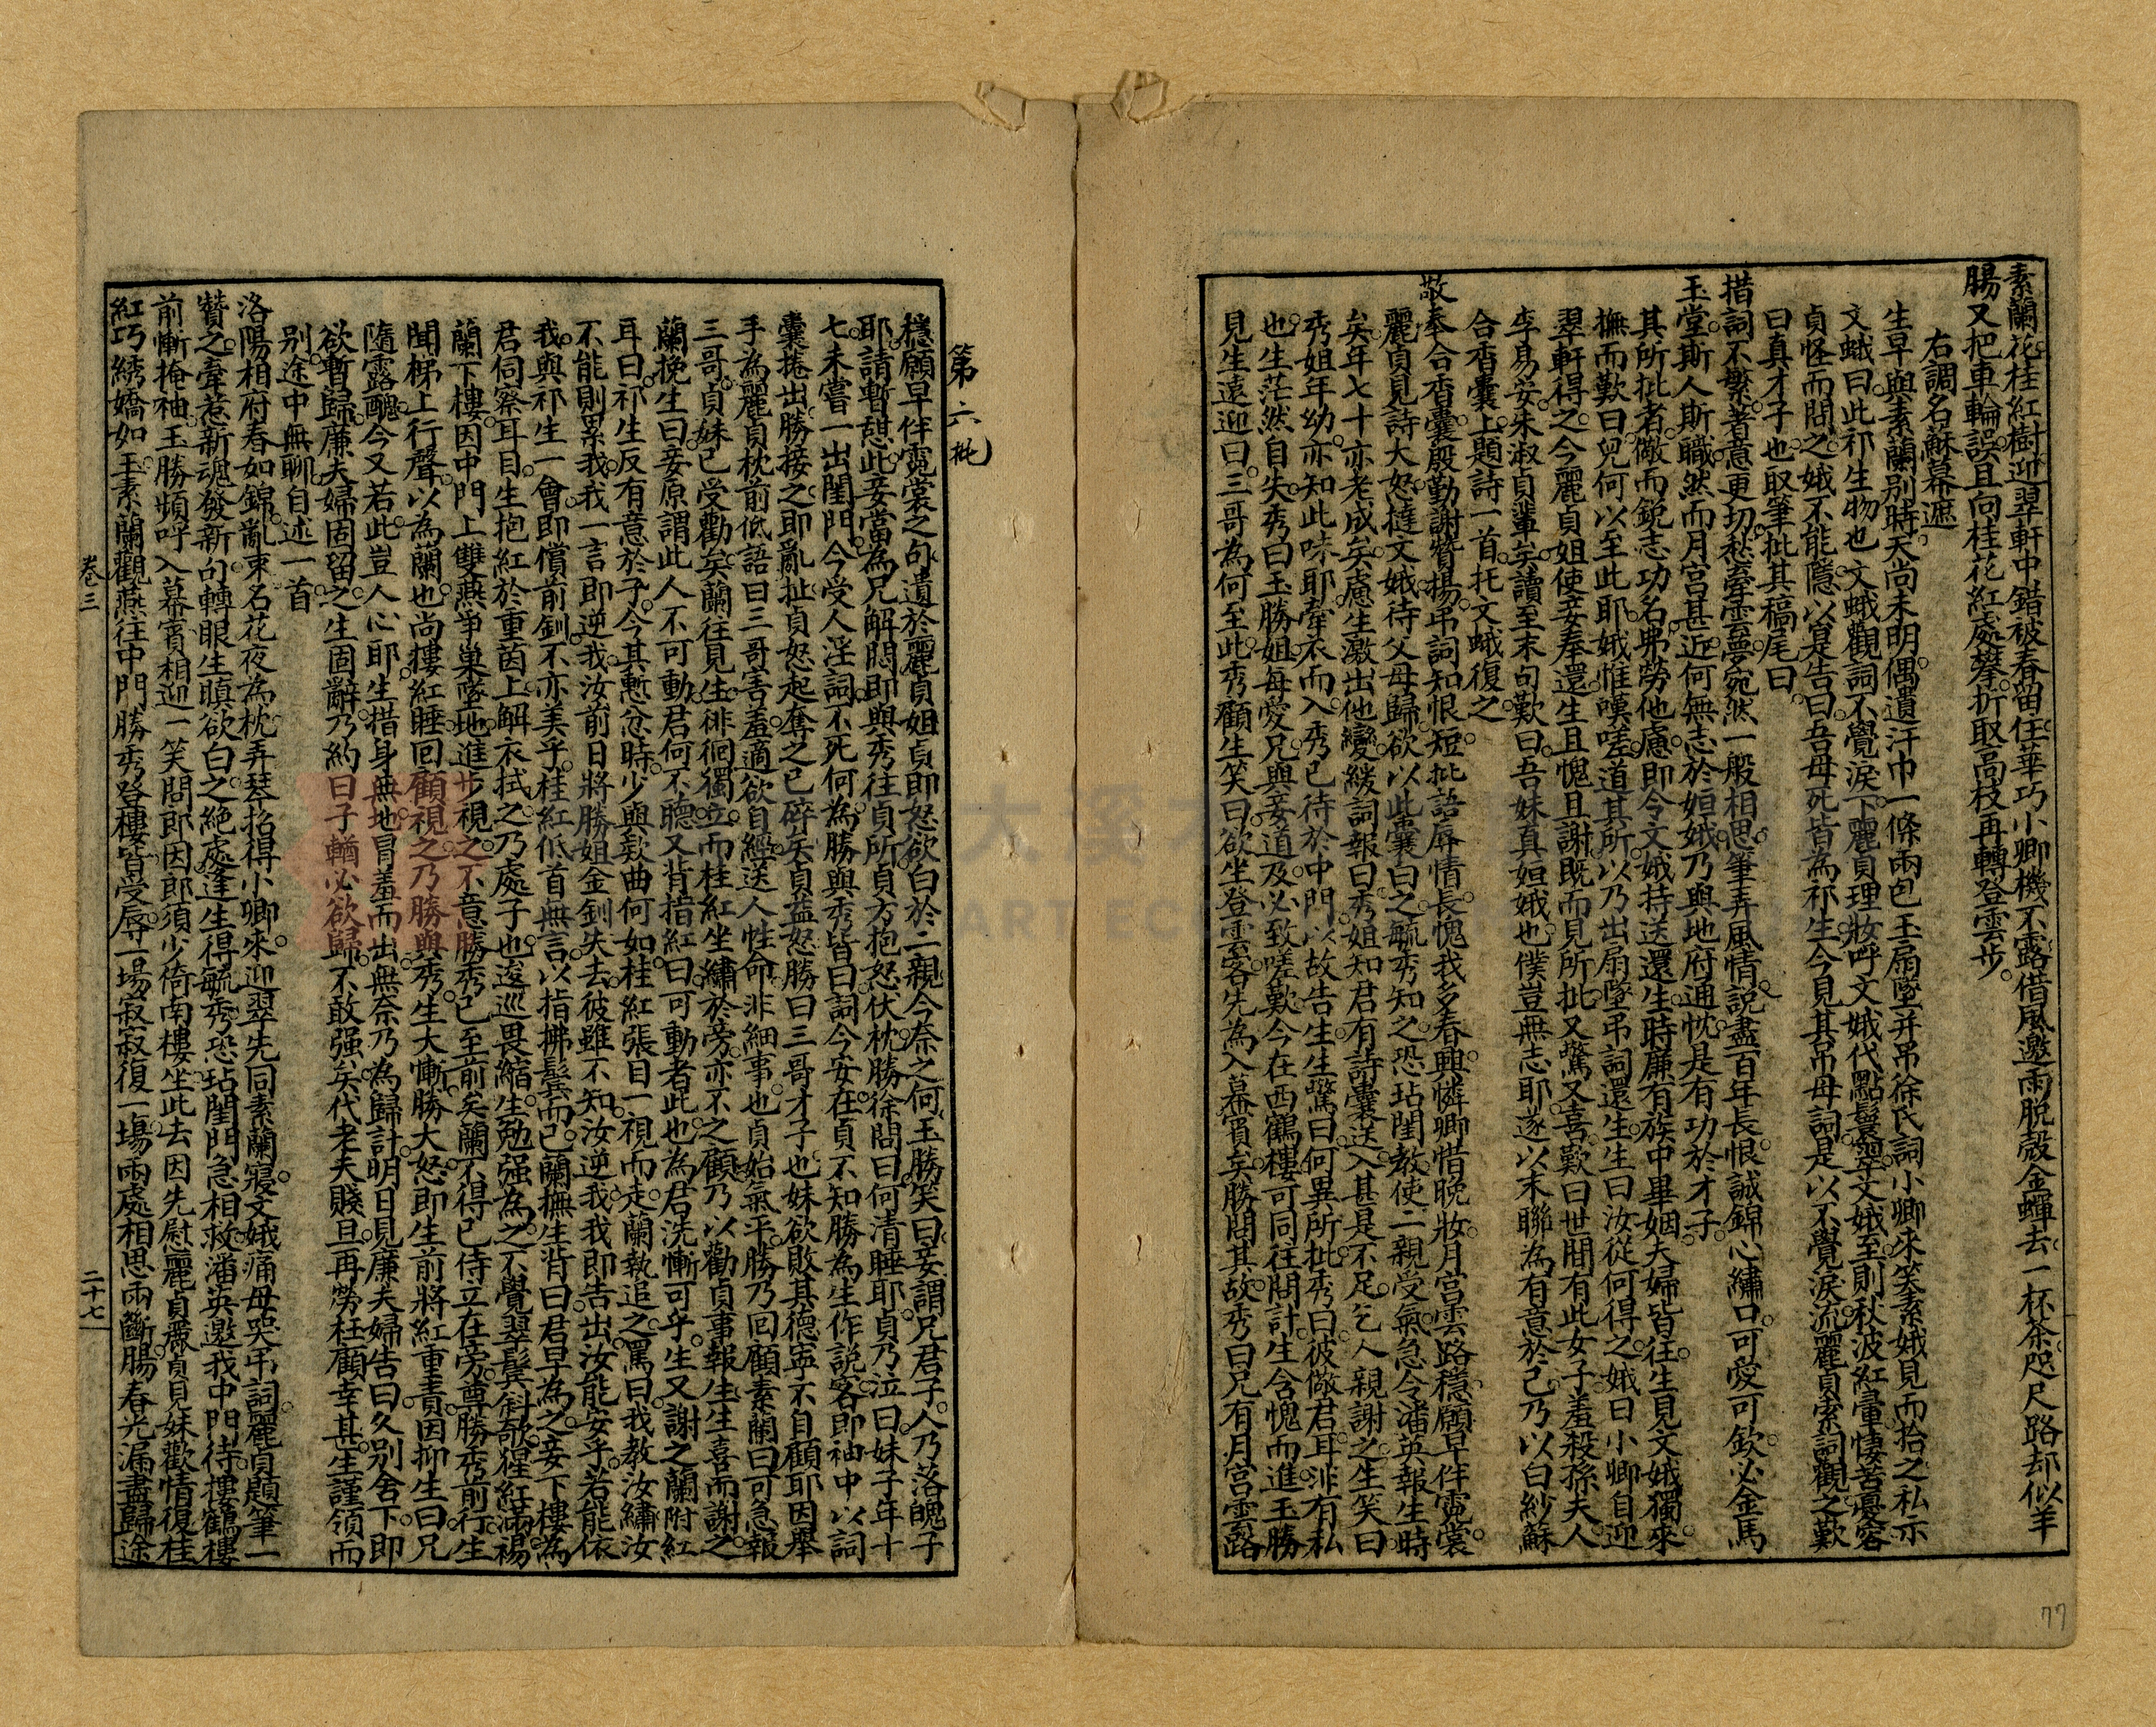 素蘭花桂紅樹迎翠軒中錯被春留住華巧小卿機不露借風邀雨脫殼金蟬去一杯茶咫尺路却似羊
腸又把車輪誤且向桂花紅處攀折取高枝再轉登雲步
右調名蘇幕遮
生早與素蘭別時天尚未明偶遺汗巾一條兩包玉扇墜并吊徐氏詞小卿來笑素娥見而拾之私示
文娥曰此祁生物也文娥觀詞不覺淚下麗貞理妝呼文娥代點鬢翠文娥至則秋波紅暈悽苦憂容
貞怪而問之娥不能隱以是告曰吾母死皆為祁生今見其吊母詞是以不覺淚流麗貞索詞觀之歎
曰真才子也取筆批其稿尾曰
措詞不繁著意更切愁牽雲夢宛然一般相思筆弄風情說盡百年長恨誠錦心繡口可愛可欽必金馬
玉堂斯人斯職然而月宮甚近何無志於姮娥乃與地府通忱是有功於才子
其所批者儆而銳志功名弗勞他慮即令文娥持送還生時廉有族中畢姻夫婦皆往生見文娥獨來
撫而歎曰兒何以至此耶娥惟嘆嗟道其所以乃出扇墜吊詞還生生曰汝從何得之娥曰小卿自迎
翠軒得之今麗貞姐使妾奉還生且愧且謝既而見所批又驚又喜歎曰世間有此女子羞殺孫夫人
李易安朱淑貞輩矣讀至末句歎曰吾妹真姮娥也僕豈無志耶遂以末聯為有意於己乃以白紗蘇
合香囊上題詩一首托文娥復之
敬奉合香囊殷勤謝贊揚吊詞知恨短批語辱情長愧我多春興憐卿惜晚妝月宮雲路穩願早伴霓裳
麗貞見詩大怒撻文娥待父母歸欲以此囊白之毓秀知之恐玷閨教使二親受氣急令潘英報生時
矣年七十亦老成矣慮生激出他變緩詞報曰秀姐知君有詩囊送入甚是不足乞人親謝之生笑曰
秀姐年幼亦知此味耶牽衣而入秀已待於中門以故告生生驚曰何異所批秀曰彼儆君耳非有私
也生茫然自失秀曰玉勝姐每愛兄與妾道及必致嗟歎今在西鶴樓可同往問計生含愧而進玉勝
見生遠迎曰三哥為何至此秀顧生笑曰欲坐登雲客先為入幕賓矣勝問其故秀曰兄有月宮雲路
第六批
穩願早伴霓裳之句遺於麗貞姐貞即怒欲白於二親今奈之何玉勝笑曰妾謂兄君子人乃落魄子
耶請暫憩此妾當為兄解悶即與秀往貞所貞方抱怒伏枕勝徐問曰何清睡耶貞乃泣曰妹子年十
七未嘗一出閨門今受人淫詞不死何為勝與秀皆曰詞今安在貞不知勝為生作說客即袖中以詞
囊捲出勝接之即亂扯貞怒起奪之已碎矣貞益怒勝曰三哥才子也妹欲敗其德寧不自顧耶因舉
手為麗貞枕前低語曰三哥害羞適欲自經送人性命非細事也貞始氣平勝乃回顧素蘭曰可急報
三哥貞妹已受勸矣蘭往見生徘徊獨立而桂紅坐繡於旁亦不之顧乃以勸貞事報生生喜而謝之
蘭挽生曰妾原謂此人不可動君何不聽又背指紅曰可動者此也為君洗慚可乎生又謝之蘭附紅
耳曰祁生反有意於子今其慙忿時少與款曲何如桂紅張目一視而走蘭執追之罵曰我教汝繡汝
不能則累我我一言即逆我汝前日將勝姐金釧失去彼雖不知汝逆我我即告出汝能安乎若能依
我與祁生一會即償前釧不亦美乎桂紅低首無言以指拂鬢而已蘭撫生背曰君早為之妾下樓為
君伺察耳目生抱紅於重茵上解衣拭之乃處子也逡巡畏縮生勉强為之不覺翠鬢斜欹猩紅滿褥
蘭下樓因中門上雙燕爭巢墜地進步視之不意勝秀已至前矣蘭不得已侍立在旁尊勝秀前行生
聞梯上行聲以為蘭也尚摟紅睡回顧視之乃勝與秀生大慚勝大怒即生前將紅重責因抑生曰兄
隨露醜今又若此豈人心耶生措身無地冒羞而出無奈乃為歸計明日見廉夫婦告曰久別舍下即
欲暫歸廉夫婦固留之生固辭乃約曰子輶必欲歸不敢强矣代老夫賤旦再勞枉顧幸甚生謹領而
別途中無聊自述一首
洛陽相府春如錦亂束名花夜為枕弄琴招得小卿來迎翠先同素蘭寢文娥痛母哭吊詞麗貞顧筆一
贊之牽惹新魂發新句轉眼生瞋欲白之絕處逢生得毓秀恐玷閨門急相救潘英邀我中門待摟鶴樓
前慚掩袖玉勝頻呼入幕賓相迎一笑問郎因郎須少倚南樓坐此去因先慰麗貞麗貞見妹歡情復桂
紅巧綉嬌如玉素蘭觀燕往中門勝秀登樓皆受辱一場寂寂復一場兩處相思兩斷腸春光漏盡歸途
卷三
二十七
77